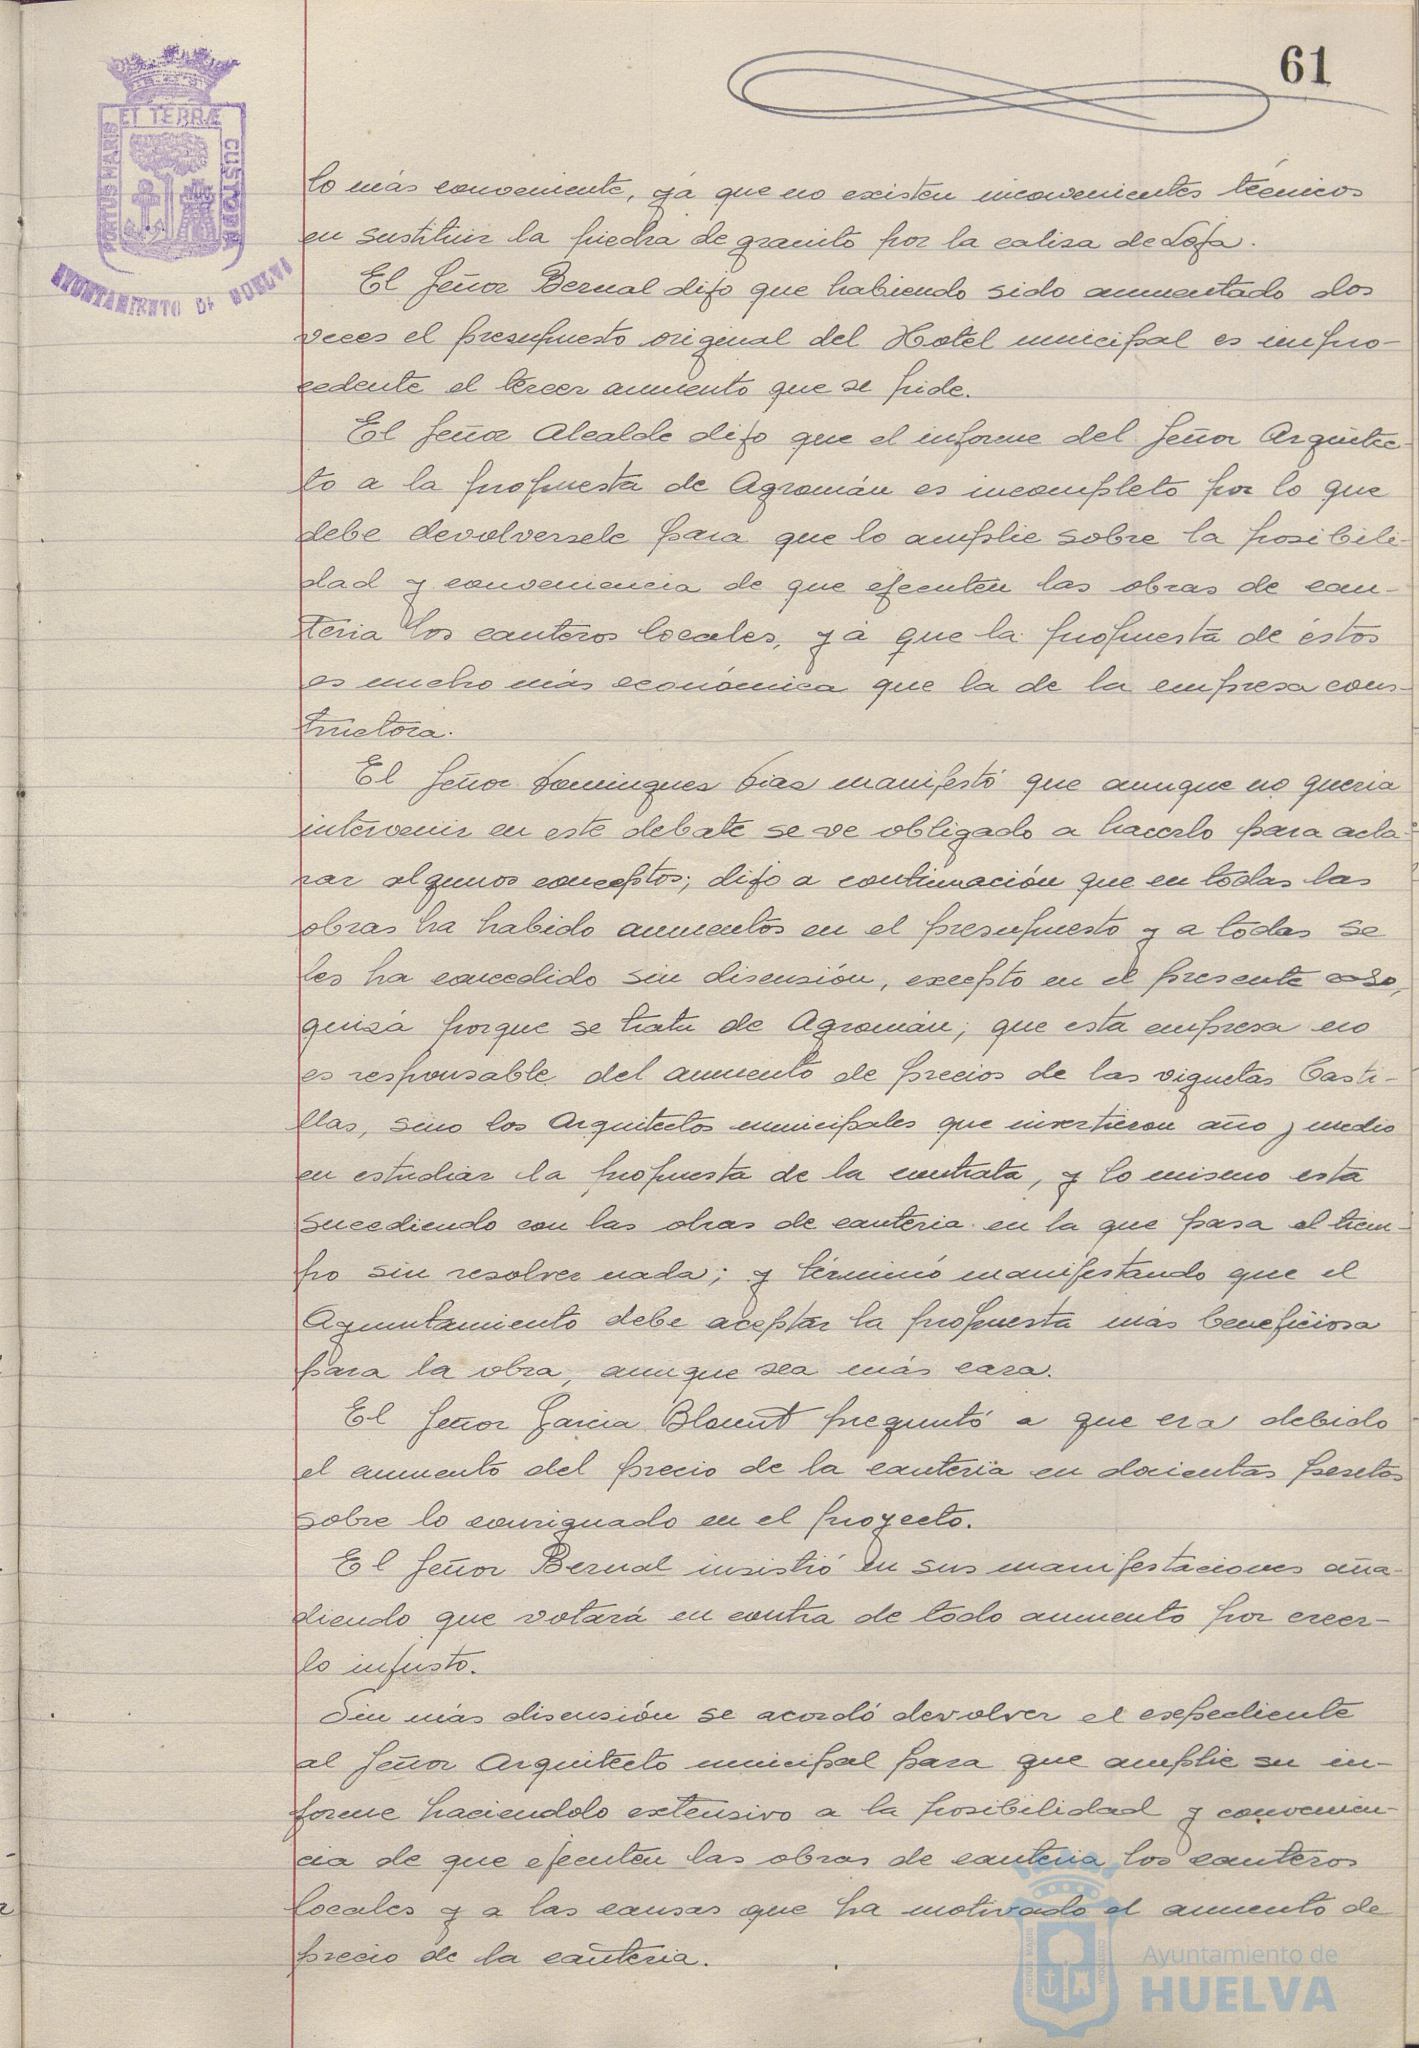 61
PORTUS MARIS ET TERRÆ CUSTODIA
AYUNTAMIENTO DE HUELVA
lo más conveniente, yá que no existen inconvenientes técnicos
en sustituir la piedra de granito por la caliza de Loja.
El Señor Bernal dijo que habiendo sido aumentado dos
veces el presupuesto original del Hotel municipal es impro-
cedente el tercer aumento que se pide.
El Señor Alcalde dijo que el informe del Señor Arquitec-
to a la propuesta de Agromán es incompleto por lo que
debe devolversele para que lo amplie sobre la posibili-
dad y conveniencia de que ejecuten las obras de can-
teria los canteros locales, yá que la propuesta de éstos
es mucho más económica que la de la empresa cons-
tructora.
El Señor Dominguez Dias manifestó que aunque no queria
intervenir en este debate se ve obligado a hacerlo para acla-
rar algunos conceptos; dijo a continuación que en todas las
obras ha habido aumentos en el presupuesto y a todas se
les ha concedido sin discusión, excepto en el presente caso,
quizá porque se trata de Agromán; que esta empresa no
es responsable del aumento de precios de las viguetas Casti-
llas, sino los Arquitectos municipales que invertieron año y medio
en estudiar la propuesta de la contrata, y lo mismo esta
sucediendo con las obras de canteria en la que pasa el tiem-
po sin resolver nada; y términó manifestando que el
Ayuntamiento debe aceptar la propuesta más beneficiosa
para la obra, aunque sea más cara.
El Señor Garcia Blount preguntó a que era debido
el aumento del precio de la canteria en docientas pesetas
sobre lo consignado en el proyecto.
El Señor Bernal insistió en sus manifestaciones aña-
diendo que votará en contra de todo aumento por creer-
lo injusto.
Sin más discusión se acordó devolver el expediente
al Señor Arquitecto municipal para que amplie su in-
forme haciendolo extensivo a la posibilidad y convenien-
cia de que ejecuten las obras de canteria los canteros
locales y a las causas que ha motivado el aumento de
precio de la canteria.
Ayuntamiento de
HUELVA